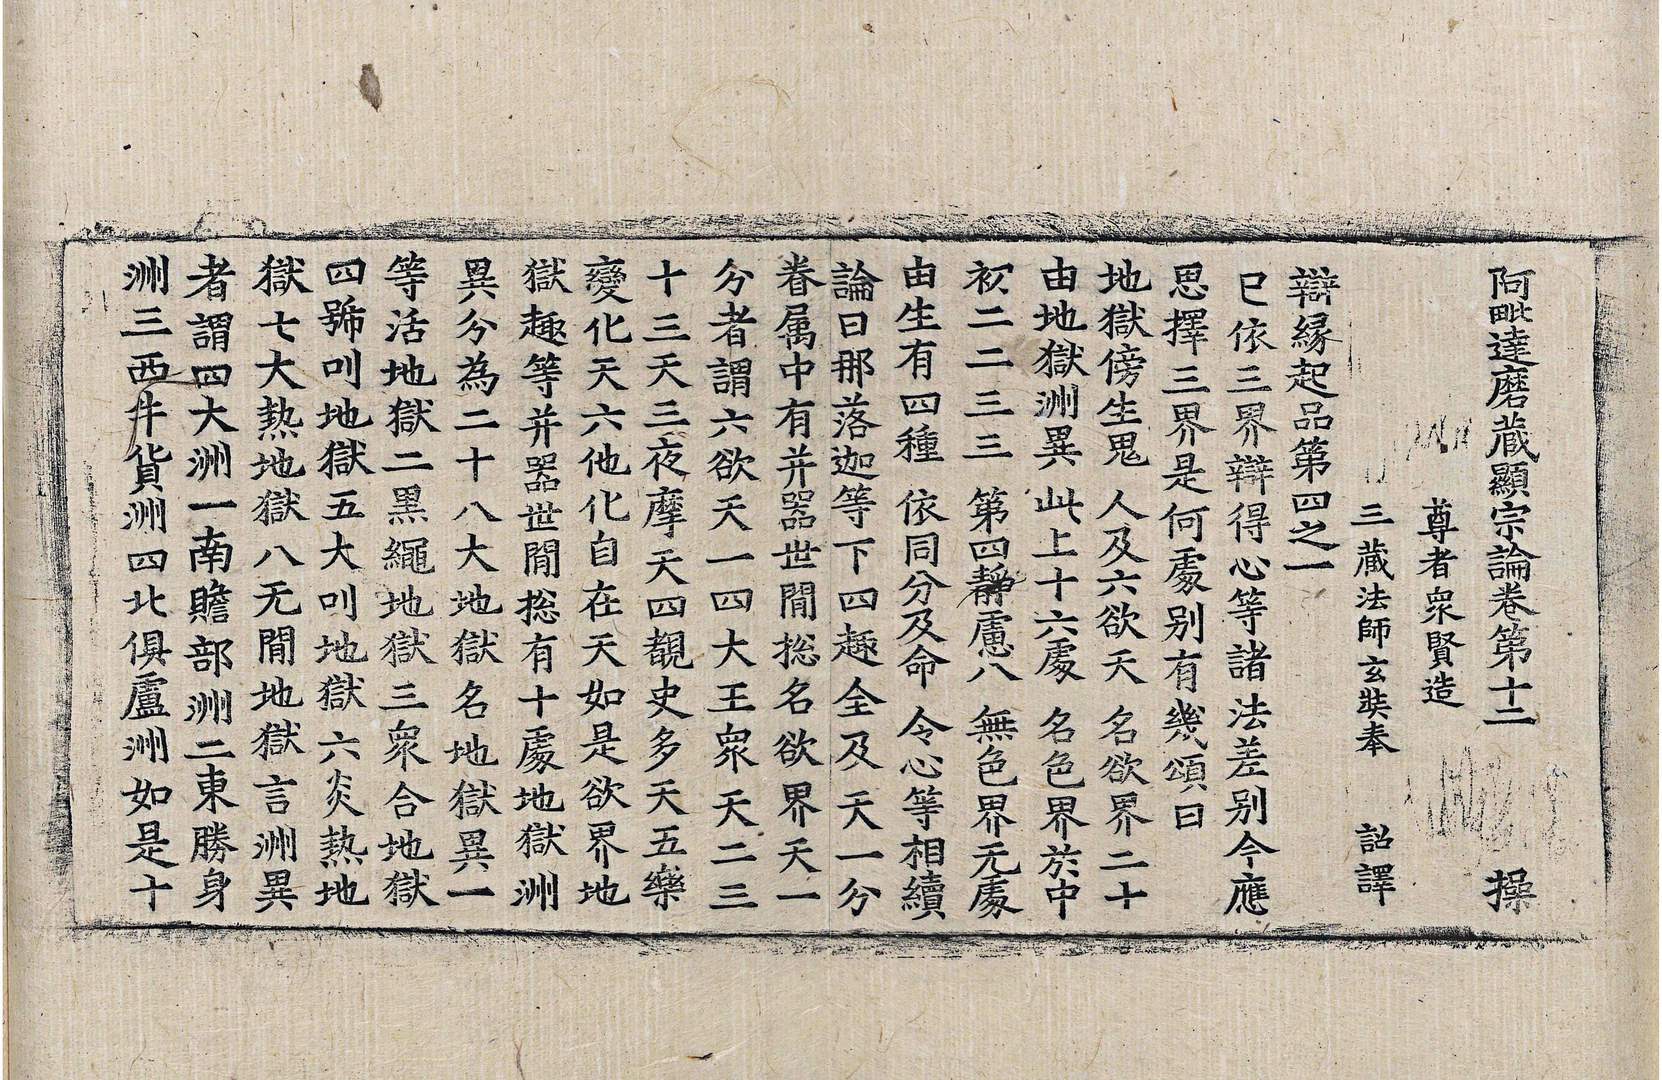 阿毗達磨蔵顯宗論卷第十二 操
尊者衆賢造
三蔵法師玄奘奉 詔譯
辯縁起品第四之一
已依三界辯得心等諸法差别今應
思擇三界是何處别有幾頌曰
地獄傍生鬼 人及六欲天 名欲界二十
由地獄洲異 此上十六處 名色界於中
初二二三三 第四靜慮八 無色界无處
由生有四種 依同分及命 令心等相續
論曰那落迦等下四趣全及天一分
眷属中有并器世間惣名欲界天一
分者謂六欲天一四大王衆天二三
十三天三夜摩天四覩史多天五樂
變化天六他化自在天如是欲界地
獄趣等并器世間惣有十處地獄洲
異分為二十八大地獄名地獄異一
等活地獄二黒繩地獄三衆合地獄
四號叫地獄五大叫地獄六炎熱地
獄七大熱地獄八无間地獄言洲異
者謂四大洲一南贍部洲二東勝身
洲三西牛貨洲四北俱盧洲如是十